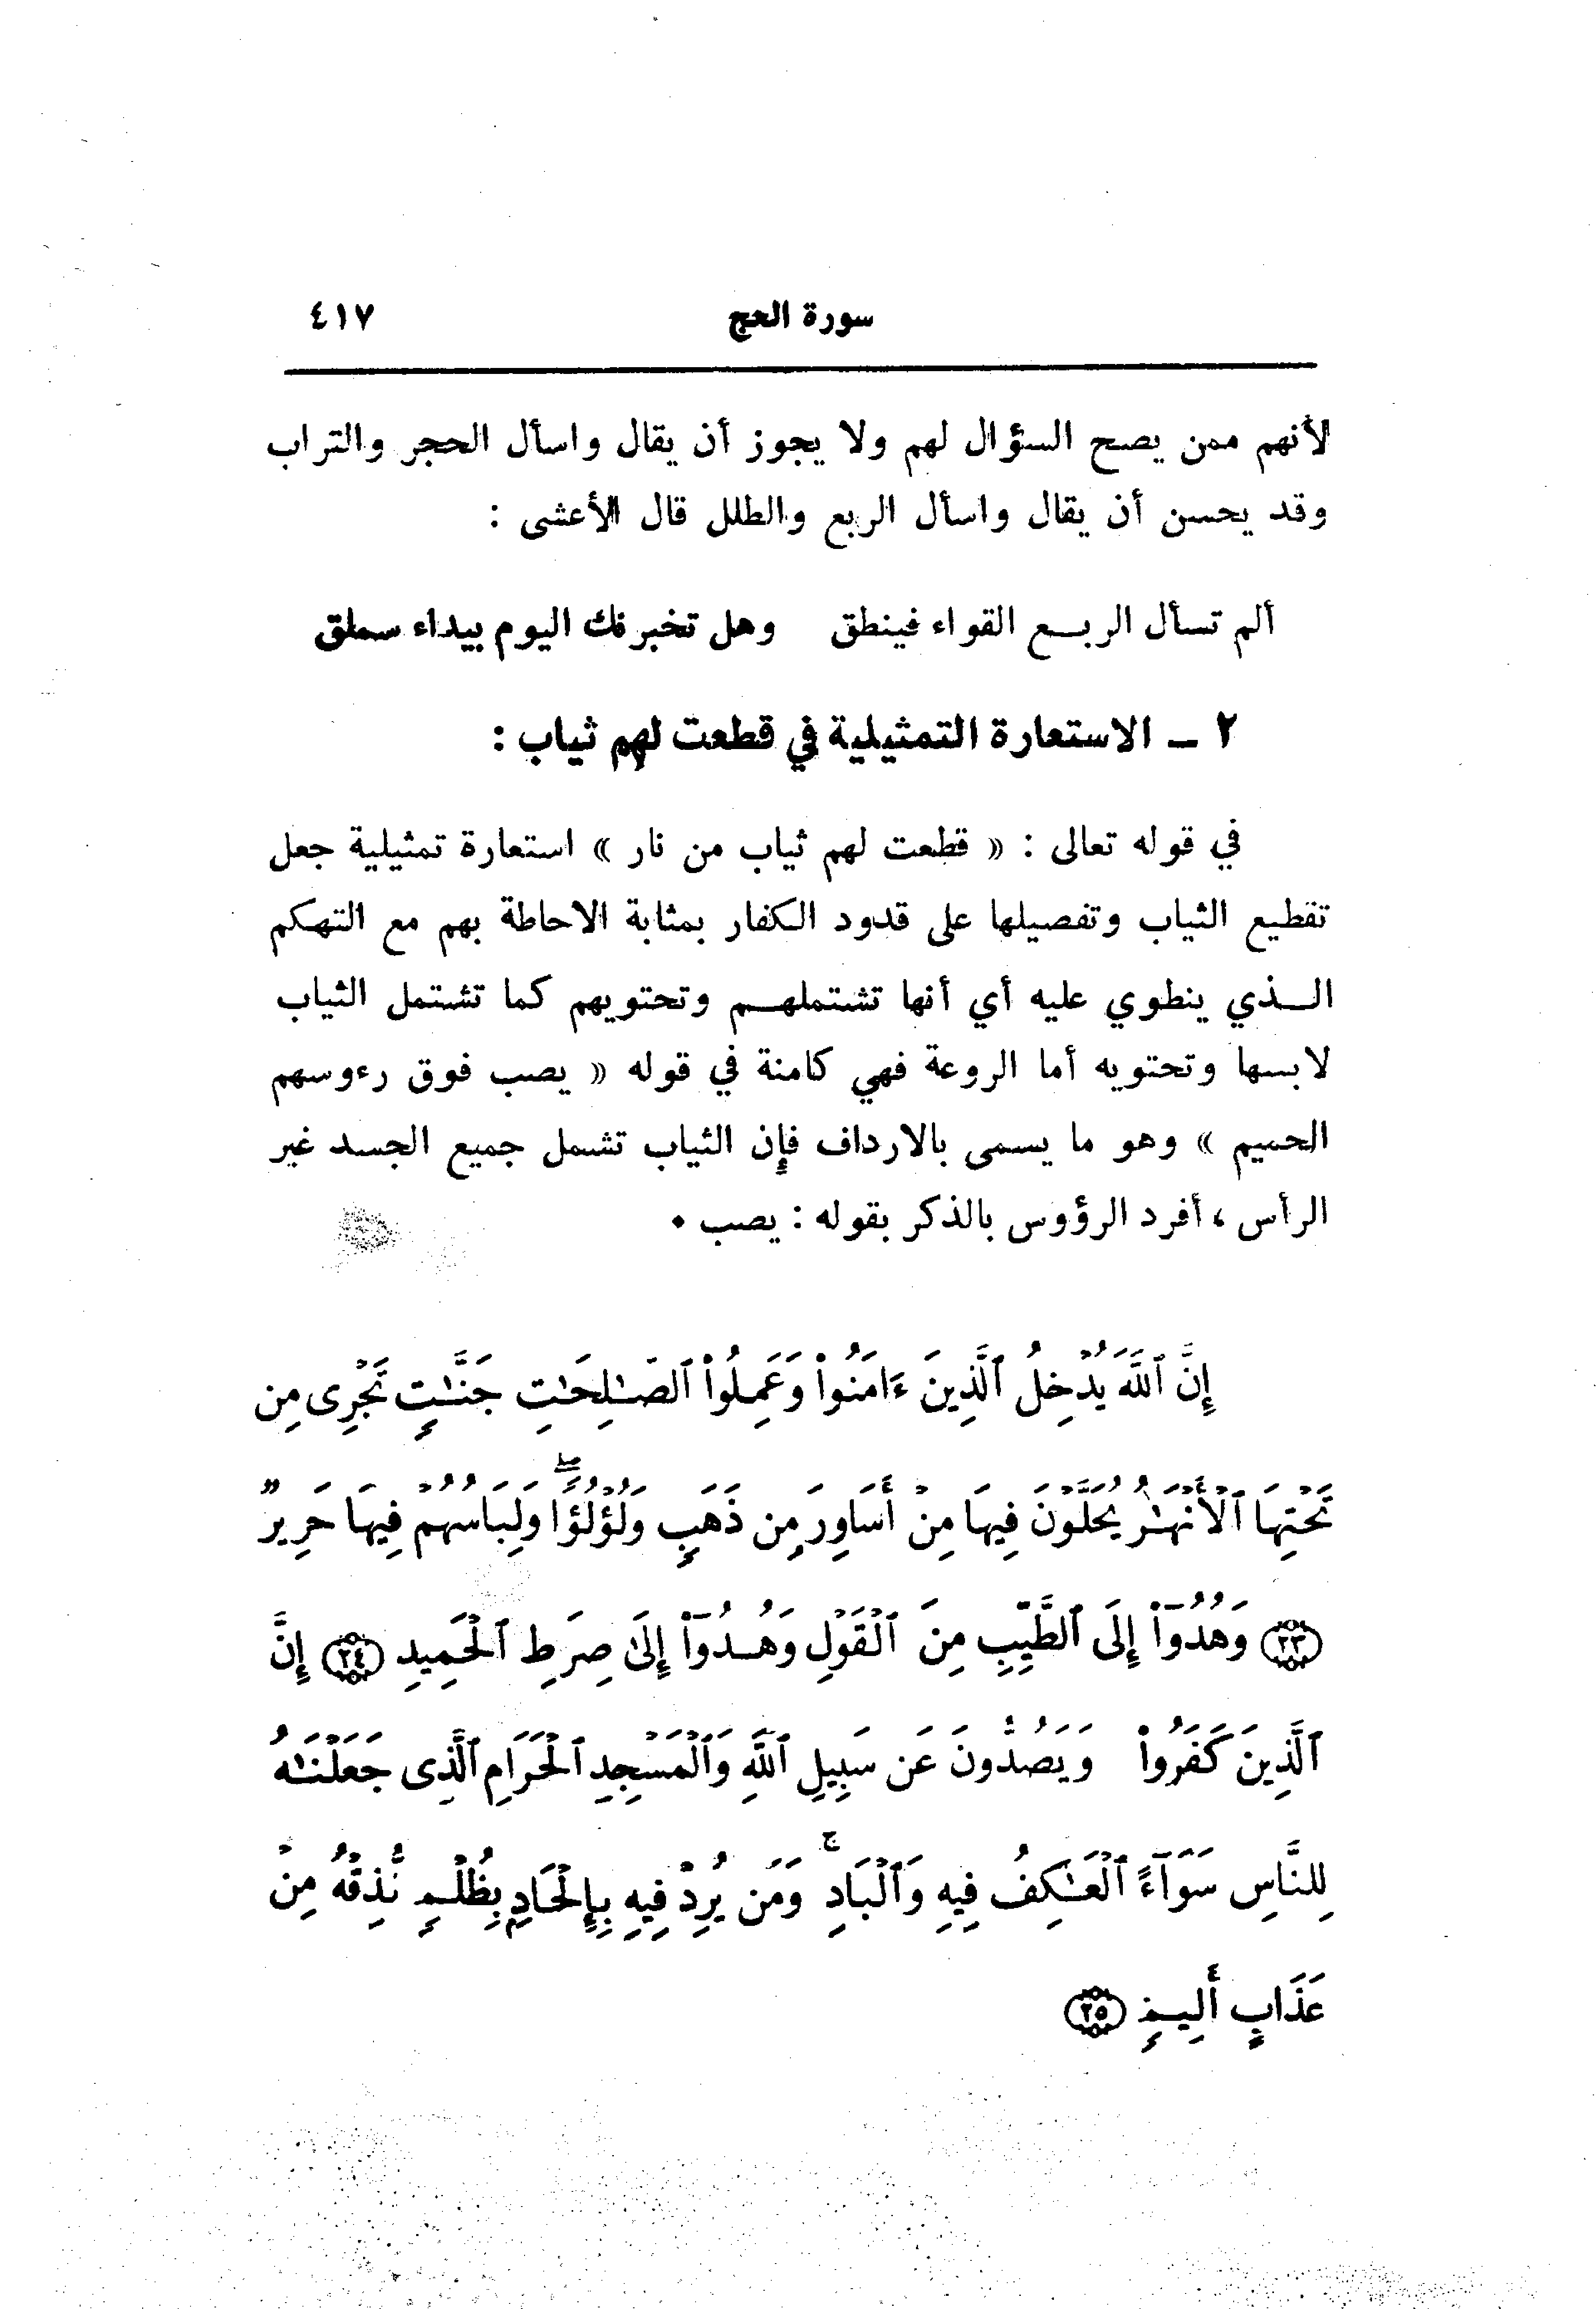 سورة الحج ٤١٧
لأنهم ممن يصح السؤال لهم ولا يجوز أن يقال واسأل الحجر والتراب
وقد يحسن أن يقال واسأل الربع والطلل قال الأعشى :
ألم تسأل الربع القواء فينطق وهل تخبرنك اليوم بيداء سملق
٢ ـ الاستعارة التمثيلية في قطعت لهم ثياب :
في قوله تعالى : « قطعت لهم ثياب من نار » استعارة تمثيلية جعل
تقطيع الثياب وتفصيلها على قدود الكفار بمثابة الاحاطة بهم مع التهكم
الذي ينطوي عليه أي أنها تشتملهم وتحتويهم كما تشتمل الثياب
لابسها وتحتويه أما الروعة فهي كامنة في قوله « يصب فوق رءوسهم
الحميم » وهو ما يسمى بالارداف فإن الثياب تشمل جميع الجسد غير
الرأس ، أفرد الرؤوس بالذكر بقوله : يصب ٠
إِنَّ ٱللَّهَ يُدْخِلُ ٱلَّذِينَ ءَامَنُوا۟ وَعَمِلُوا۟ ٱلصَّـٰلِحَـٰتِ جَنَّـٰتٍ تَجْرِى مِن
تَحْتِهَا ٱلْأَنْهَـٰرُ يُحَلَّوْنَ فِيهَا مِنْ أَسَاوِرَ مِن ذَهَبٍ وَلُؤْلُؤًا ۖ وَلِبَاسُهُمْ فِيهَا حَرِيرٌ
﴿٢٣﴾ وَهُدُوٓا۟ إِلَى ٱلطَّيِّبِ مِنَ ٱلْقَوْلِ وَهُدُوٓا۟ إِلَىٰ صِرَٰطِ ٱلْحَمِيدِ ﴿٢٤﴾ إِنَّ
ٱلَّذِينَ كَفَرُوا۟ وَيَصُدُّونَ عَن سَبِيلِ ٱللَّهِ وَٱلْمَسْجِدِ ٱلْحَرَامِ ٱلَّذِى جَعَلْنَـٰهُ
لِلنَّاسِ سَوَآءً ٱلْعَـٰكِفُ فِيهِ وَٱلْبَادِ ۚ وَمَن يُرِدْ فِيهِ بِإِلْحَادٍۭ بِظُلْمٍ نُّذِقْهُ مِنْ
عَذَابٍ أَلِيمٍ ﴿٢٥﴾